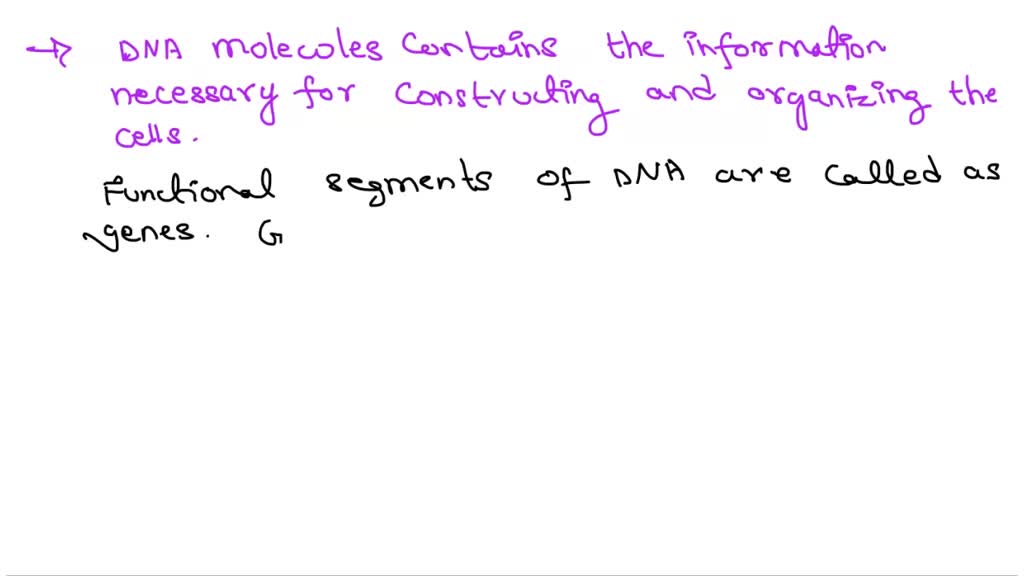 → DNA molecoles contains the information
necessary for constructing and organizing the
cells.
Functional segments of DNA are called as
genes. G